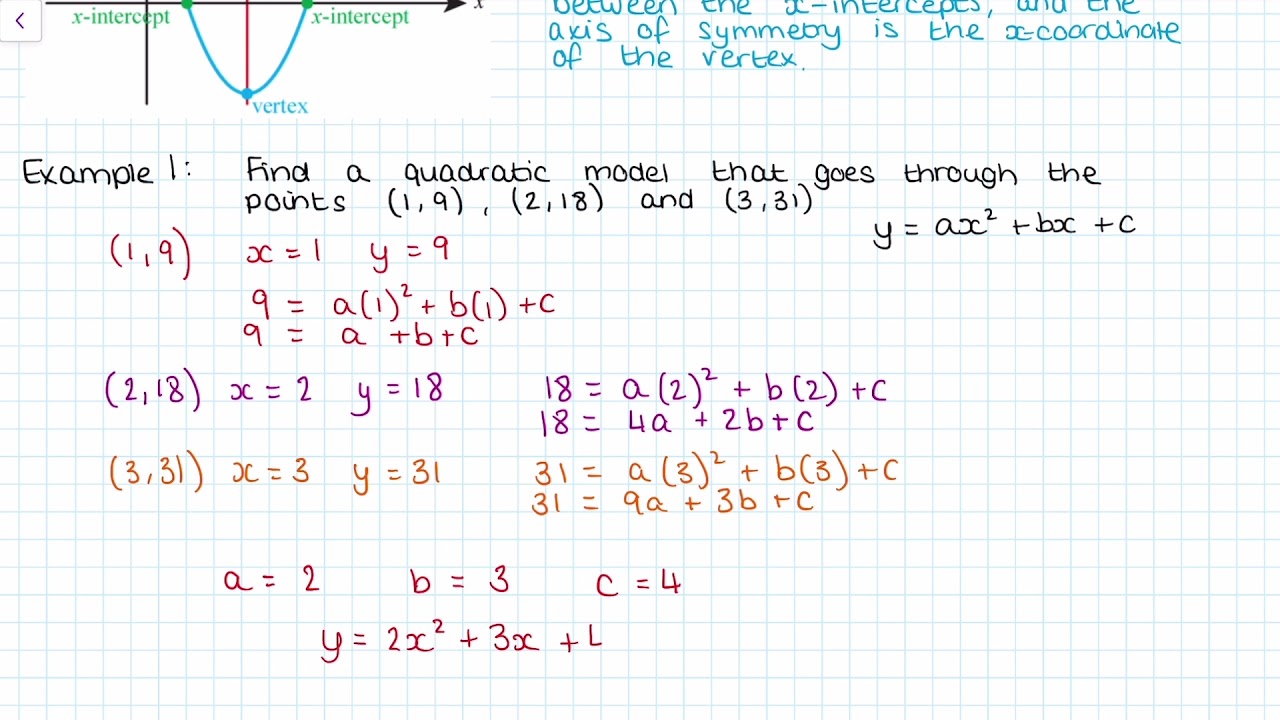 x-intercept x-intercept x
vertex
between the x-intercepts, and the
axis of symmetry is the x-coordinate
of the vertex.
Example 1: Find a quadratic model that goes through the
points (1,9), (2,18) and (3,31)
y = ax² + bx + c
(1,9) x = 1 y = 9
9 = a(1)² + b(1) + c
9 = a + b + c
(2,18) x = 2 y = 18 18 = a(2)² + b(2) + c
18 = 4a + 2b + c
(3,31) x = 3 y = 31 31 = a(3)² + b(3) + c
31 = 9a + 3b + c
a = 2 b = 3 c = 4
y = 2x² + 3x + L